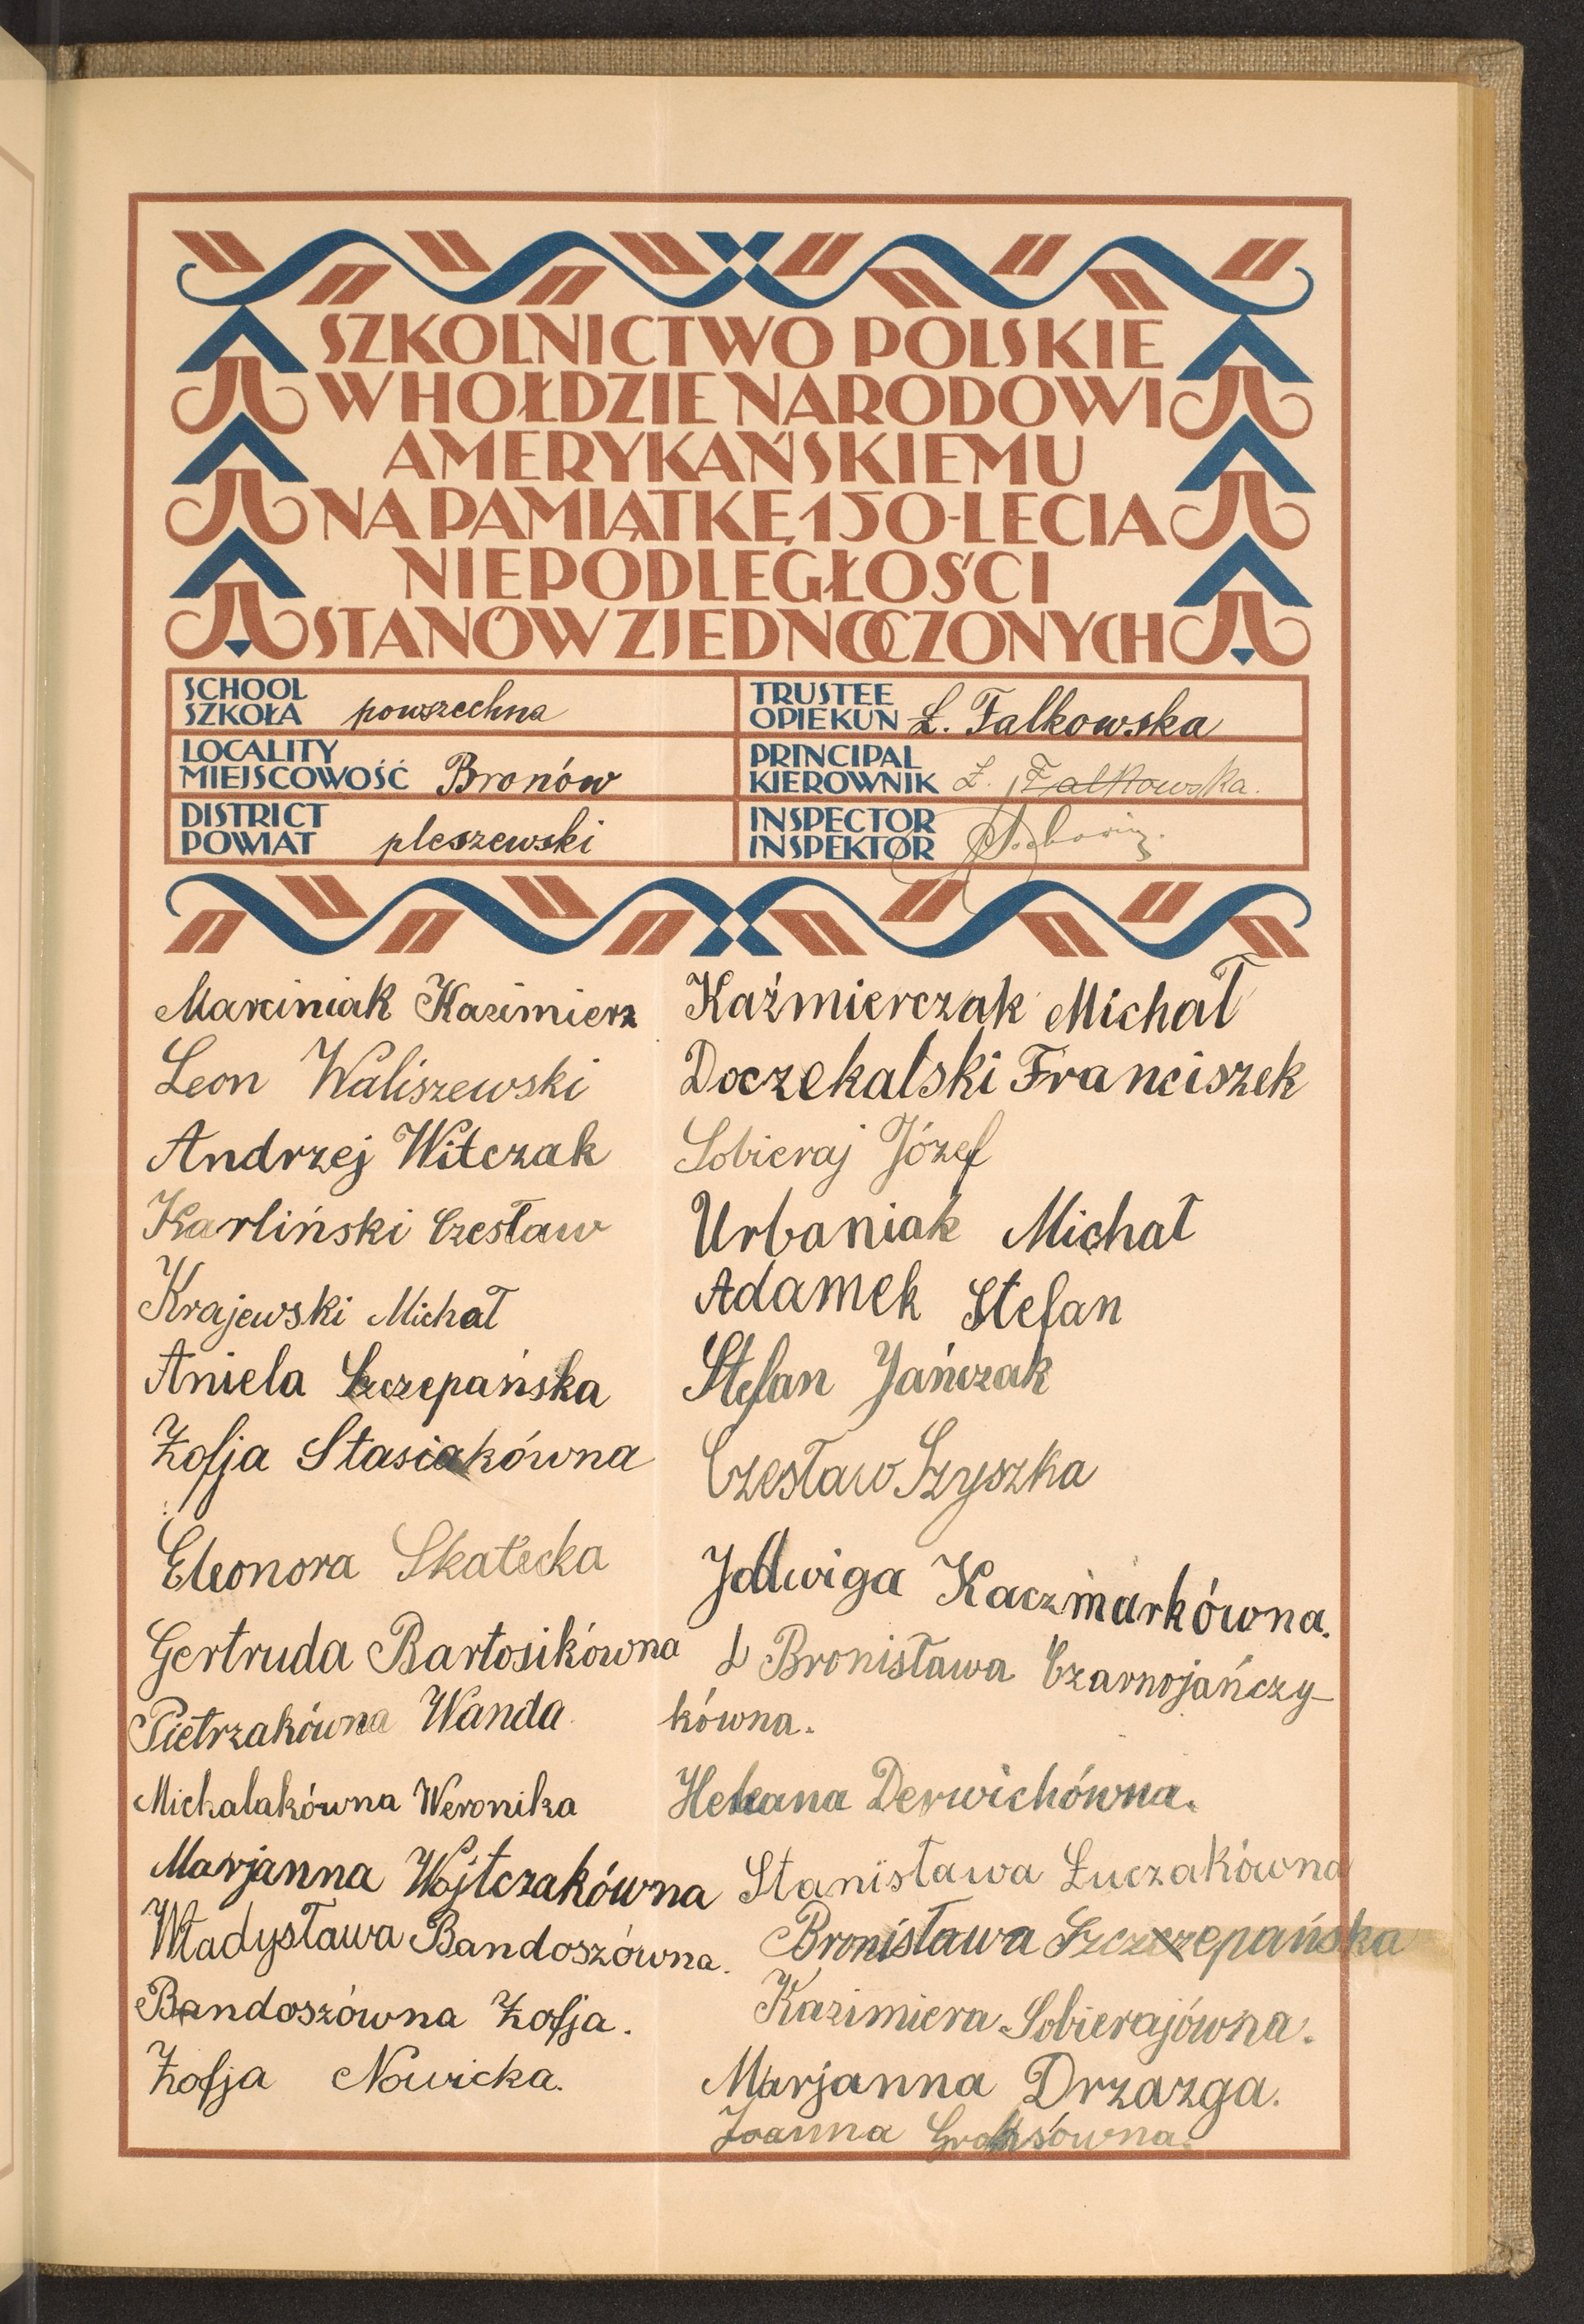 SZKOLNICTWO POLSKIE
W HOŁDZIE NARODOWI
AMERYKAŃSKIEMU
NA PAMIĄTKĘ 150-LECIA
NIEPODLEGŁOŚCI
STANÓW ZJEDNOCZONYCH
SCHOOL
SZKOŁA powszechna
TRUSTEE
OPIEKUN Ł. Falkowska
LOCALITY
MIEJSCOWOŚĆ Bronów
PRINCIPAL
KIEROWNIK Ł. Falkowska.
DISTRICT
POWIAT pleszewski
INSPECTOR
INSPEKTOR
Marciniak Kazimierz
Leon Waliszewski
Andrzej Witczak
Karliński Czesław
Krajewski Michał
Aniela Szczepańska
Zofja Stasiakówna
Eleonora Skałecka
Gertruda Bartosikówna
Pietrzakówna Wanda
Michalakówna Weronika
Marjanna Wojtczakówna
Władysława Bandoszówna.
Bandoszówna Zofja.
Zofja Nowicka.
Kaźmierczak Michał
Doczekalski Franciszek
Sobieraj Józef
Urbaniak Michał
Adamek Stefan
Stefan Jańczak
Czesław Szyszka
Jadwiga Kaczmarkówna.
Bronisława Czarnojańczy-
kówna.
Helena Derwichówna.
Stanisława Łuczakówna
Bronisława Szczepańska
Kazimiera Sobierajówna.
Marjanna Drzazga.
Joanna